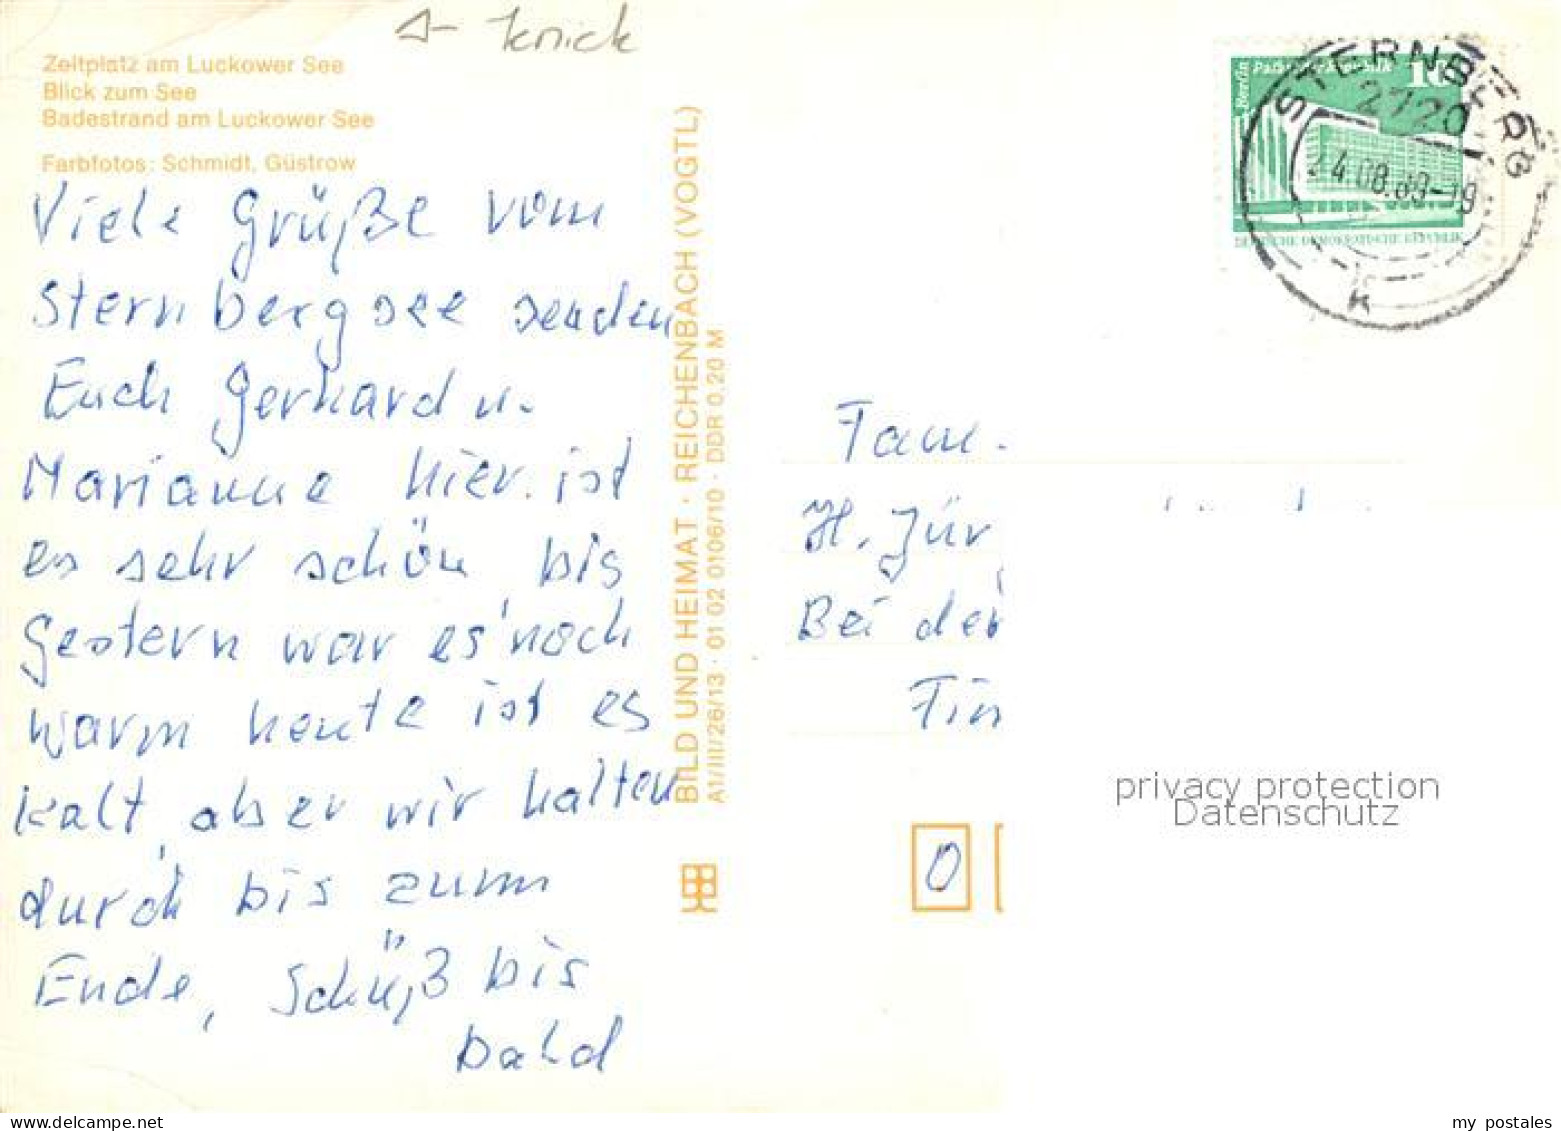 Knick
Zeltplatz am Luckower See
Blick zum See
Badestrand am Luckower See
Farbfotos: Schmidt, Güstrow
Viele Grüße vom
Sternbergsee senden
Euch Gerhard u.
Marianne hier ist
es sehr schön, bis
Gestern war es noch
warm heute ist es
kalt, aber wir halten
durch bis zum
Ende, Schüß bis
bald
BILD UND HEIMAT · REICHENBACH (VOGTL)
A1/III/26/13 · 01 02 0106/10 · DDR 0,20 M
Berlin
10
DEUTSCHE DEMOKRATISCHE REPUBLIK
STERNBERG
2720
24.08.89-19
K
Fam.
H. Jür
Bei der
Fin
0
privacy protection
Datenschutz
my postales